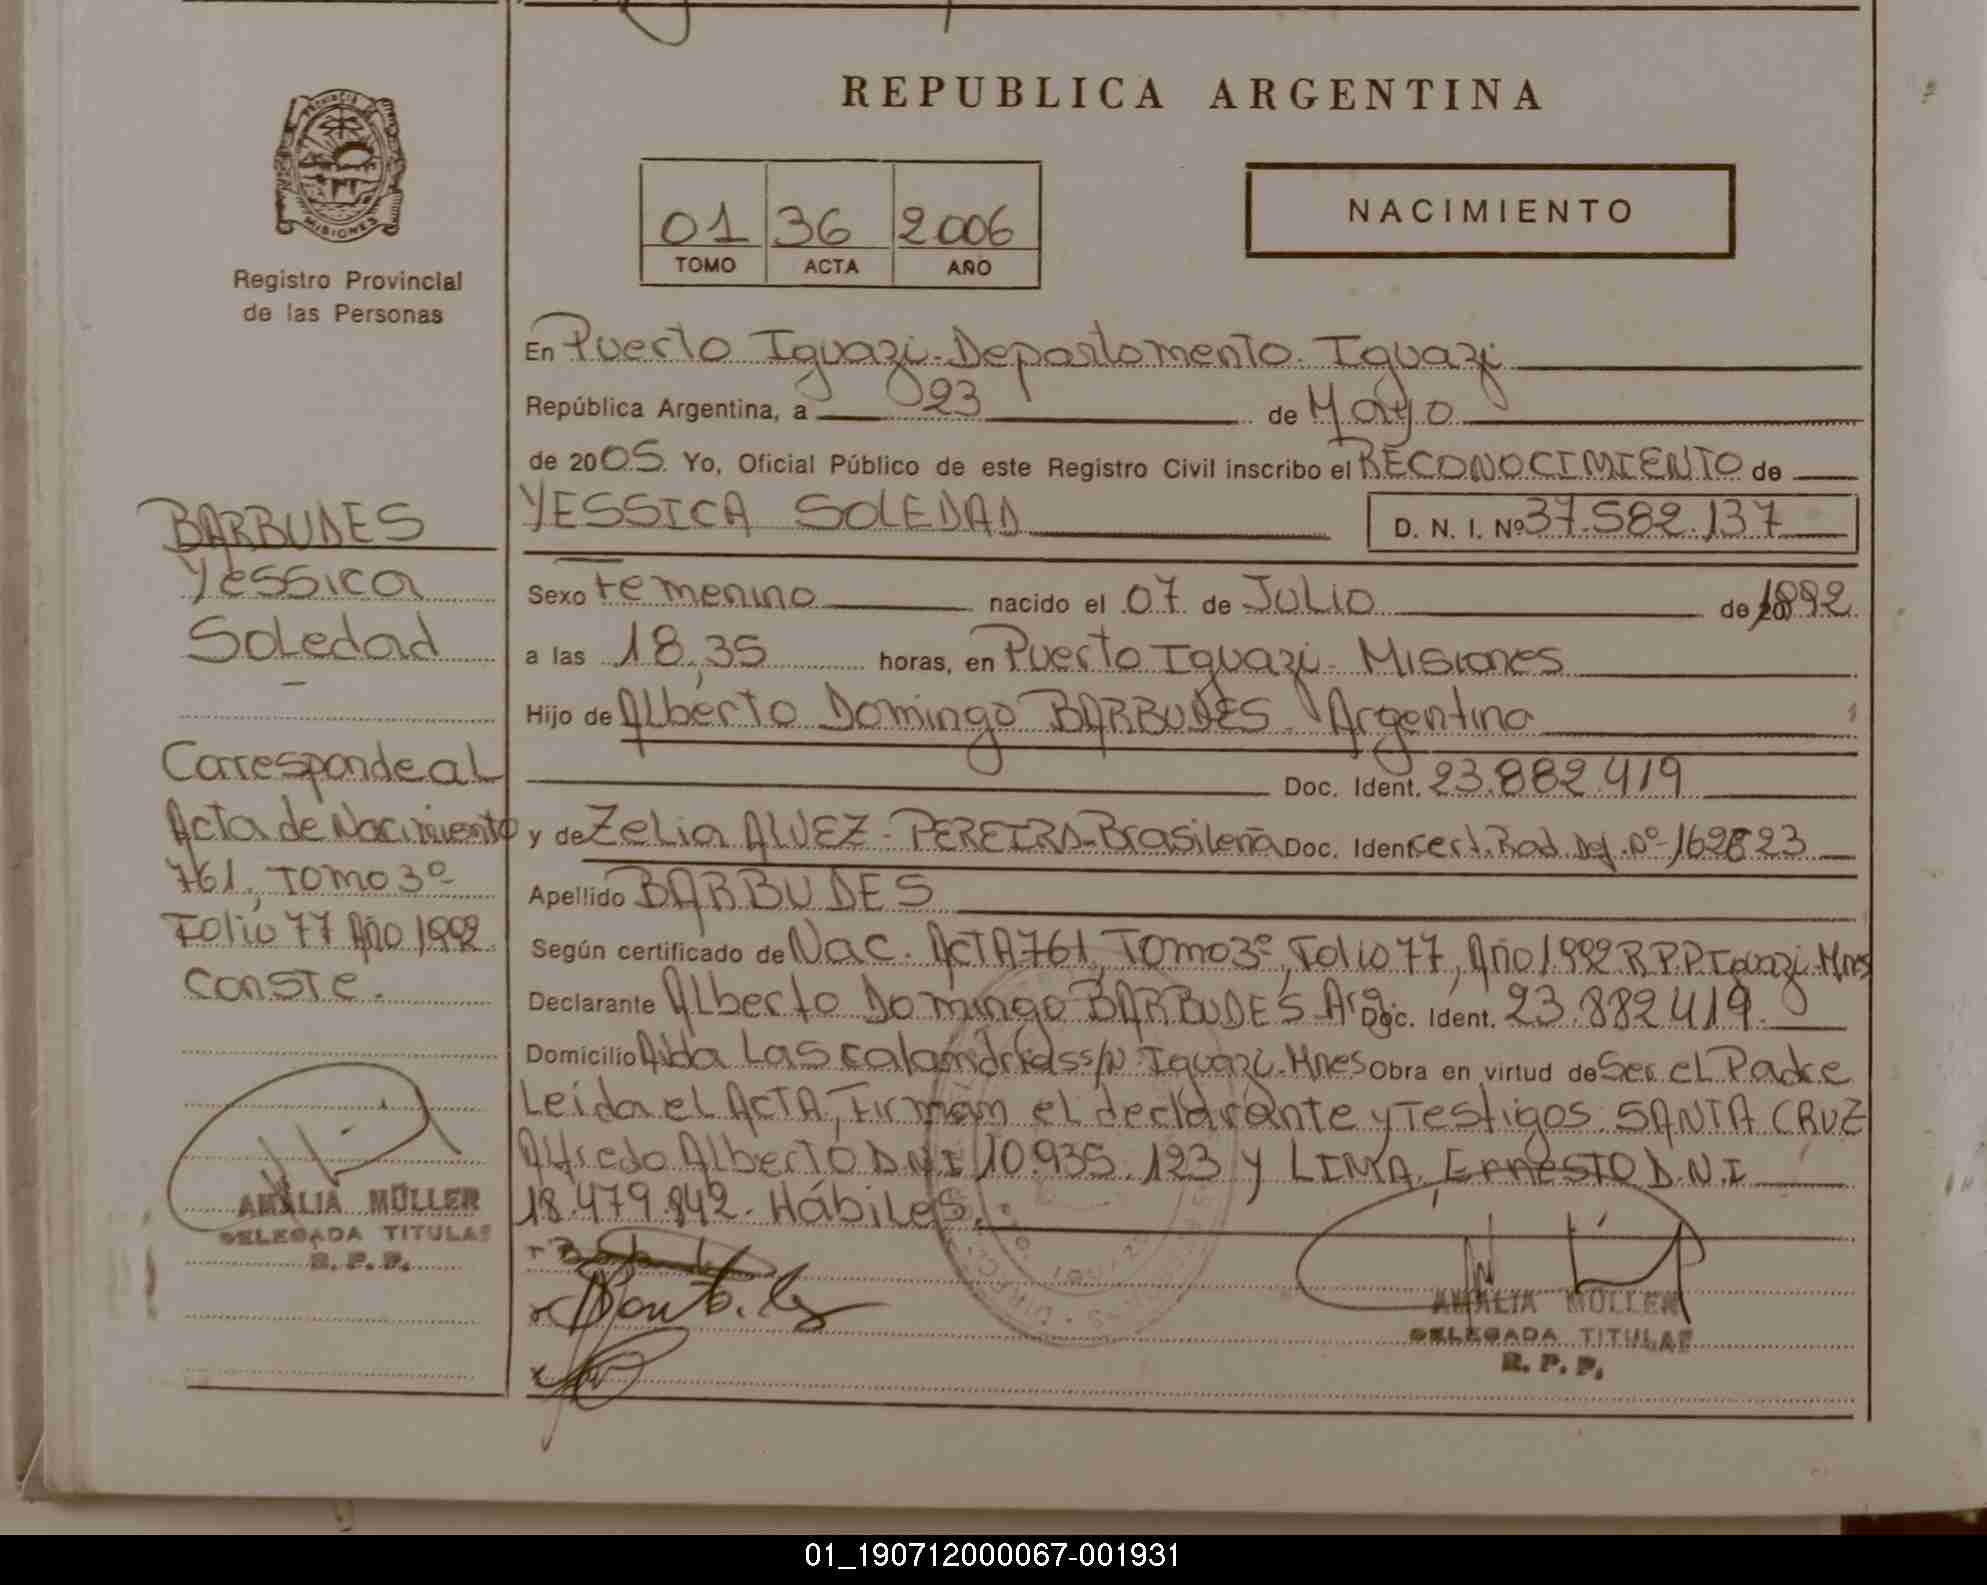 REPUBLICA ARGENTINA
PROVINCIA DE
MISIONES
Registro Provincial
de las Personas
01 36 2006
TOMO ACTA AÑO
NACIMIENTO
En Puerto Iguazú - Departamento Iguazú
República Argentina, a 23 de Mayo
de 2005. Yo, Oficial Público de este Registro Civil inscribo el RECONOCIMIENTO de
YESSICA SOLEDAD D. N. I. Nº 37.582.137
Sexo Femenino nacido el 07 de Julio de 1992
a las 18,35 horas, en Puerto Iguazú - Misiones
Hijo de Alberto Domingo BARBUDES - Argentino
Doc. Ident. 23.882.419
y de Zelia ALVEZ - PEREIRA - Brasileña Doc. Iden Cert. Rad. Def. Nº 162823
Apellido BARBUDES
Según certificado de Nac. ACTA 761, Tomo 3º, Folio 77, Año 1992 R.P.P Iguazú - Mnes
Declarante Alberto Domingo BARBUDES Arg. Doc. Ident. 23.882.419.
Domicilio Avda Las calandrias s/n Iguazú - Mnes Obra en virtud de Ser el Padre
Leída el ACTA, Firman el declarante y Testigos SANTA CRUZ
Alfredo Alberto D.N.I 10.935.123 y LIMA, Ernesto D.N.I
18.479.842. Hábiles.
BARBUDES
Yessica
Soledad
Corresponde al
Acta de Nacimiento
761, Tomo 3º
Folio 77 Año 1992
conste.
AMALIA MÜLLER
DELEGADA TITULAR
R. P. P.
AMALIA MÜLLER
DELEGADA TITULAR
R. P. P.
01_190712000067-001931